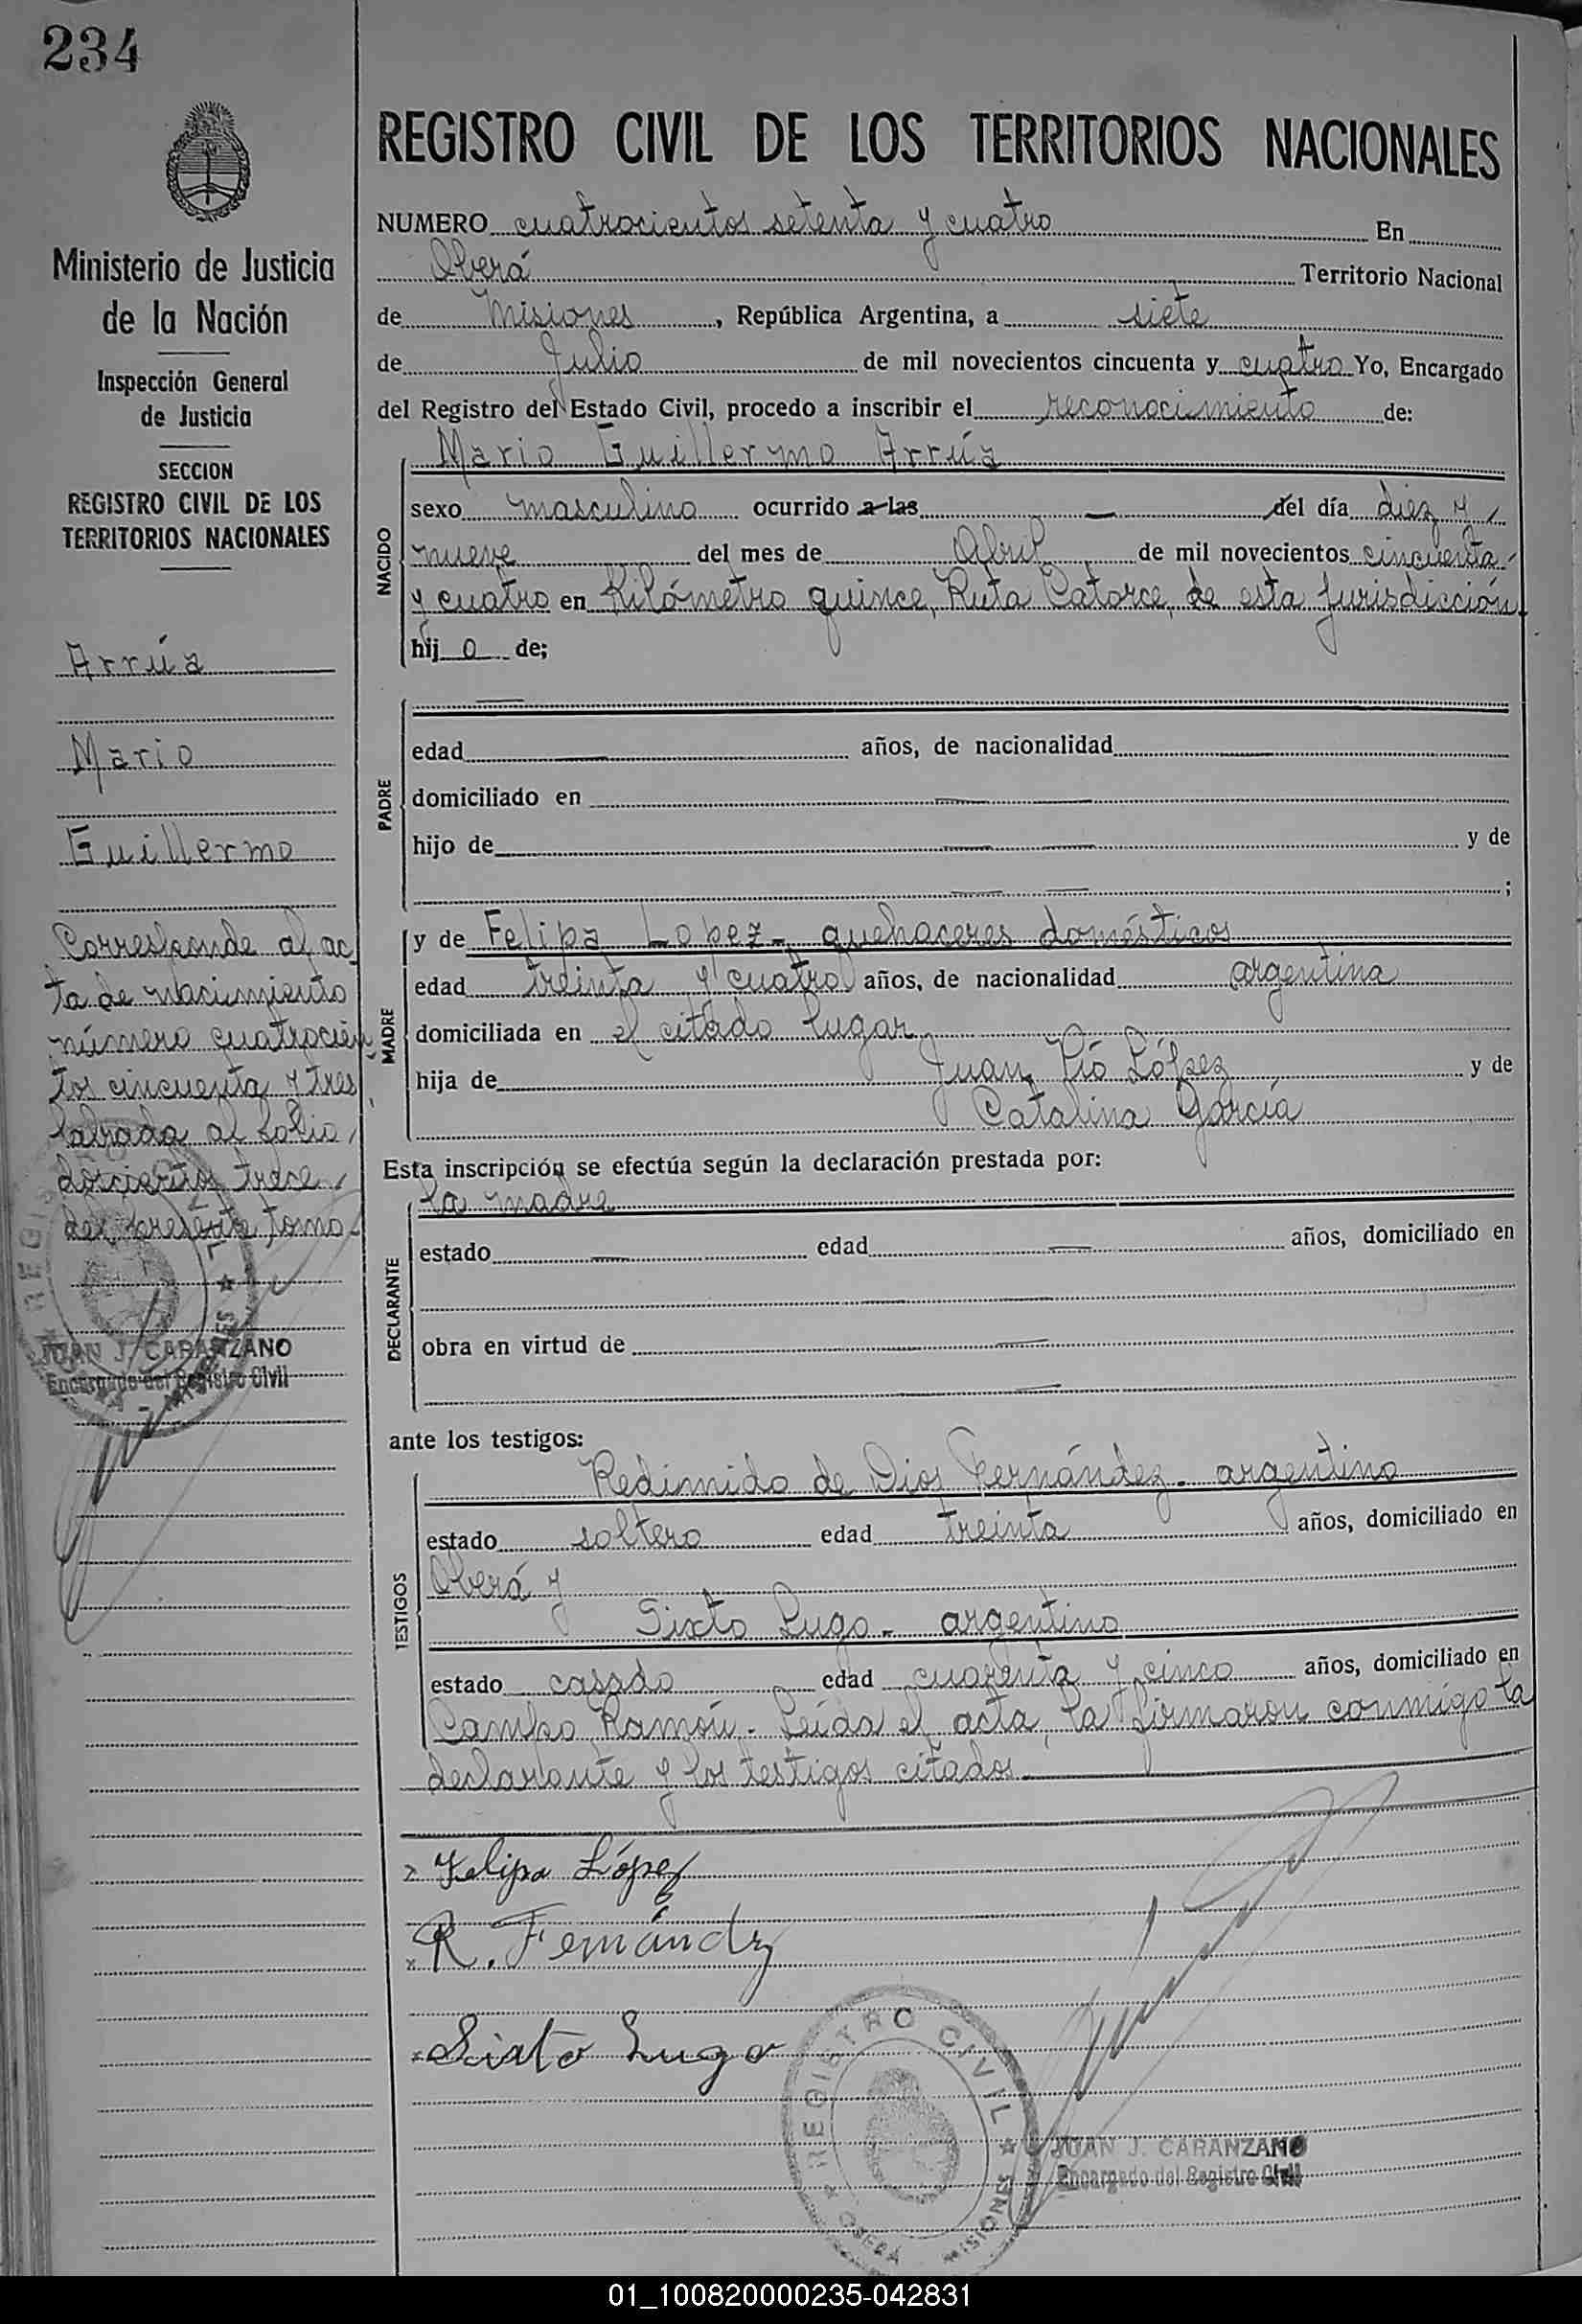 234
Ministerio de Justicia
de la Nación
Inspección General
de Justicia
SECCION
REGISTRO CIVIL DE LOS
TERRITORIOS NACIONALES
Arrúa
Mario
Guillermo
Corresponde al ac
ta de nacimiento
número cuatrocien
tos cincuenta y tres
labrada al folio
doscientos trece
del presente tomo.
JUAN J. CARANZANO
Encargado del Registro Civil
REGISTRO CIVIL DE LOS TERRITORIOS NACIONALES
NUMERO cuatrocientos setenta y cuatro En
Oberá Territorio Nacional
de Misiones, República Argentina, a siete
de Julio de mil novecientos cincuenta y cuatro Yo, Encargado
del Registro del Estado Civil, procedo a inscribir el reconocimiento de:
Mario Guillermo Arrúa
NACIDO
sexo masculino ocurrido a las — del día diez y
nueve del mes de Abril de mil novecientos cincuenta
y cuatro en Kilómetro quince, Ruta Catorce, de esta jurisdicción
hij o de;
PADRE
—
edad — años, de nacionalidad —
domiciliado en — —
hijo de — — y de
— — ;
MADRE
y de Felipa Lopez-, quehaceres domésticos
edad treinta y cuatro años, de nacionalidad argentina
domiciliada en el citado lugar
hija de Juan Pío López y de
Catalina García
Esta inscripción se efectúa según la declaración prestada por:
DECLARANTE
la madre
estado — edad — años, domiciliado en
obra en virtud de —
—
ante los testigos:
TESTIGOS
Redimido de Dios Fernández- argentino
estado soltero edad treinta años, domiciliado en
Oberá y
Sixto Lugo- argentino
estado casado edad cuarenta y cinco años, domiciliado en
Campo Ramón.- Leída el acta, la firmaron conmigo la
declarante y los testigos citados.
x Felipa López
x R. Fernández
x Sixto Lugo
REGISTRO CIVIL
OBERÁ MISIONES
JUAN J. CARANZANO
Encargado del Registro Civil
01_100820000235-042831